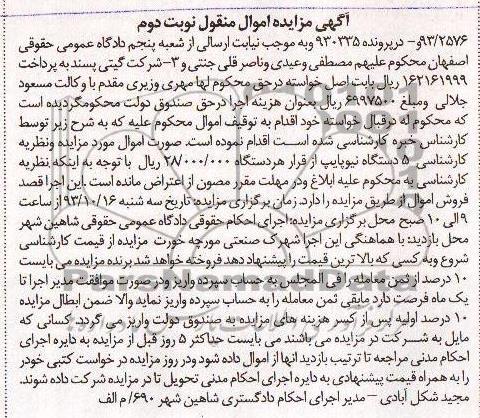 آگهی مزایده اموال منقول نوبت دوم
۹۳/۲۵۷۶و- درپرونده ۹۳۰۳۳۵ وبه موجب نیابت ارسالی از شعبه پنجم دادگاه عمومی حقوقی
اصفهان محکوم علیهم مصطفی وعیدی وناصر قلی جنتی و۳-شرکت گیتی پسند به پرداخت
۱۶۲۱۶۱۹۹۹ ریال بابت اصل خواسته درحق محکوم لها مهری وزیری مقدم با وکالت مسعود
جلالی ومبلغ ۶۹۹۷۵۰۰ ریال بعنوان هزینه اجرا درحق صندوق دولت محکومگردیده است
که محکوم له درقبال خواسته خود اقدام به توقیف اموال محکوم علیه که به شرح زیر توسط
کارشناس خبره کارشناسی شده است اقدام نموده است. صورت اموال مورد مزایده ونظریه
کارشناسی ۵ دستگاه نیوپایپ از قرار هردستگاه ۲۸/۰۰۰/۰۰۰ ریال با توجه به اینکه نظریه
کارشناسی به محکوم علیه ابلاغ ودر مهلت مقرر مصون از اعتراض مانده است .این اجرا قصد
فروش اموال از طریق مزایده را دارد. زمان برگزاری مزایده: تاریخ سه شنبه ۹۳/۱۰/۱۶ از ساعت
۹ الی ۱۰ صبح محل برگزاری مزایده:اجرای احکام حقوقی دادگاه عمومی حقوقی شاهین شهر
محل بازدید: با هماهنگی این اجرا شهرک صنعتی مورچه خورت مزایده از قیمت کارشناسی
شروع وبه کسی که بالا ترین قیمت را پیشنهاد دهد فروخته خواهد شد برنده مزایده می بایست
۱۰ درصد از ثمن معامله را فی المجلس به حساب سپرده واریز ودر صورت موافقت مدیر اجرا تا
یک ماه فرصت دارد مابقی ثمن معامله را به حساب سپرده واریز نماید والا ضمن ابطال مزایده
۱۰ درصد اولیه پس از کسر هزینه های مزایده به صندوق دولت واریز می گردد. کسانی که
مایل به شرکت در مزایده می باشند می بایست حداکثر ۵ روز قبل از مزایده به دایره اجرای
احکام مدنی مراجعه تا ترتیب بازدید آنها از اموال داده شود ودر روز مزایده در خواست کتبی خود
را به همراه قیمت پیشنهادی به دایره اجرای احکام مدنی تحویل تا در مزایده شرکت داده شوند.
مجید شکل آبادی – مدیر اجرای احکام دادگستری شاهین شهر ۶۹۰/ م الف